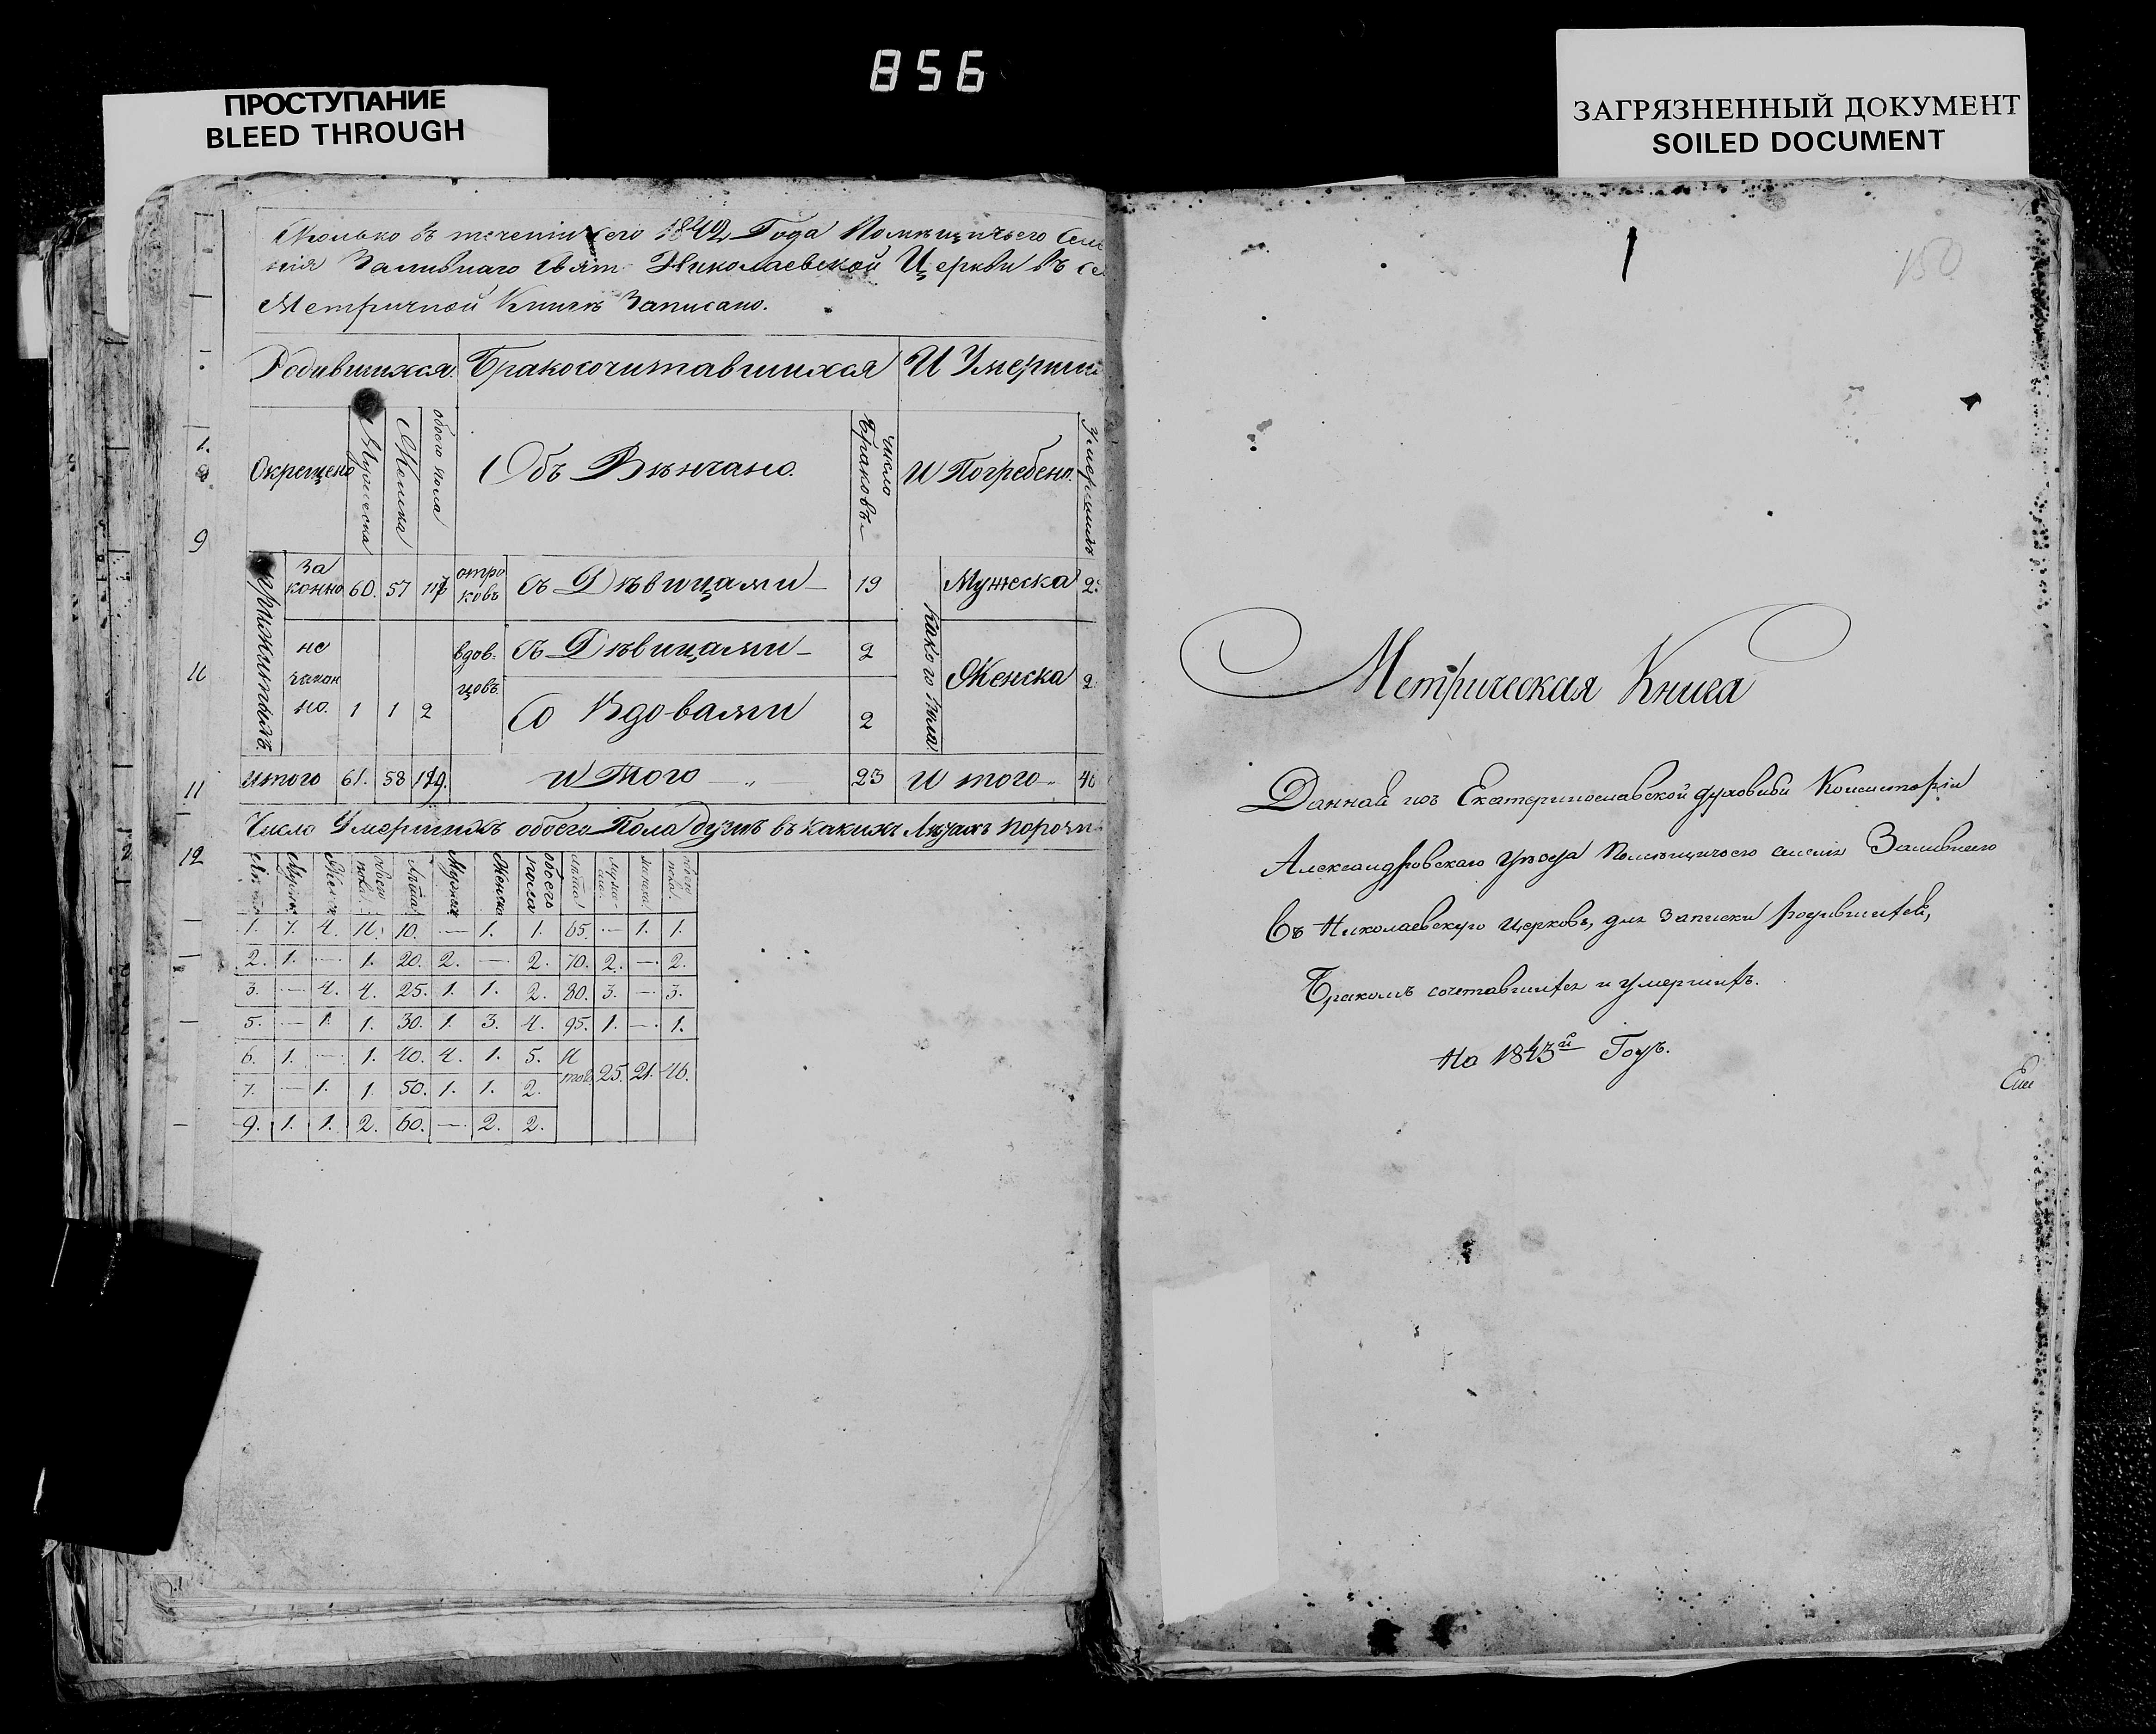 856
ПРОСТУПАНИЕ
BLEED THROUGH
ЗАГРЯЗНЕННЫЙ ДОКУМЕНТ
SOILED DOCUMENT
Сколько въ теченіи сего 1842 Года Помѣщичьего Селе
нія Заливнаго Свят Николаевской Церкви въ се
Метричной Книгѣ Записано.
Родившихся. Бракосочитавшихся И Умерши
Окрещено Мужеска Женска обоего пола Объ Вѣнчано. число Браковъ И Погребено. Умершихъ
за
конно 60. 57 117 отро
ковъ съ Дѣвицами 19 Мужеска 2
не
закон
но. 1 1 2 вдов-
цовъ съ Дѣвицами 2 какого пола Женска 2
Со Вдовами 2
итого 61. 58 119. и того 23 И того 46
Число Умершихъ обоего Пола душъ въ какихъ Лѣтахъ порозн
Лѣта Мужеск Женск обоего пола Лѣта Мужеск Женска обоего пола лѣта муже- женска обоего пола
1. 7. 4. 11. 10. — 1. 1. 65. — 1. 1.
2. 1. — 1. 20. 2. — 2. 70. 2. — 2.
3. — 4. 4. 25. 1. 1. 2. 80. 3. — 3.
5. — 1. 1. 30. 1. 3. 4. 95. 1. — 1.
6. 1. — 1. 40. 4. 1. 5. И
того 25. 21. 46.
7. — 1. 1. 50. 1. 1. 2.
9. 1. 1. 2. 60. — 2. 2.
9
11
11
12
150
Метрическая Книга
Данная изъ Екатеринославской духовной Консисторіи
Александровскаго уѣзда Помѣщичьего селенія Заливного
Въ Николаевскую церковь, для записки родившихся,
Бракомъ сочетавшихся и умершихъ.
На 1843й Годъ.